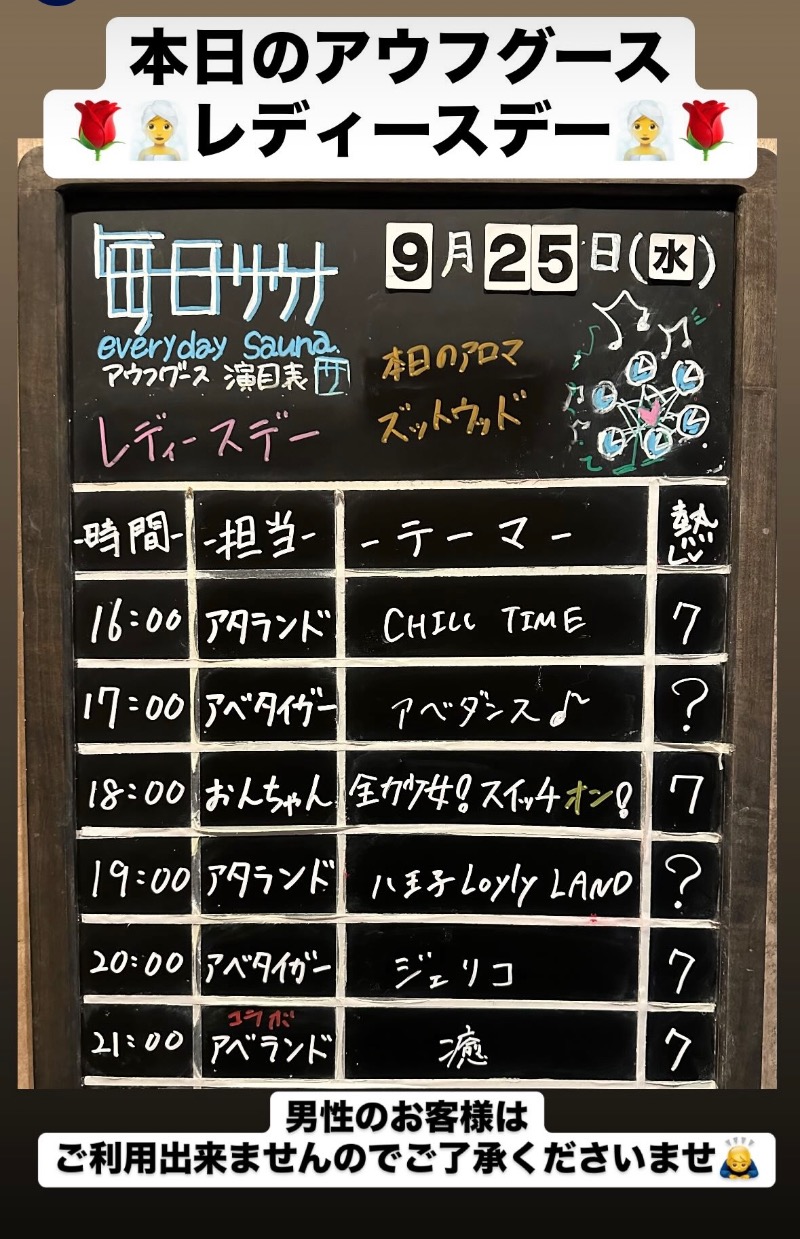 本日のアウフグース
🌹👰レディースデー👰🌹
毎日サウナ
9月25日(水)
everyday Sauna.
アウフグース 演目表 サ
本日のアロマ
ズットウッド
レディースデー
-時間- -担当- -テーマ- 熱
16:00 アタランド CHILL TIME 7
17:00 アベタイガー アベダンス♪ ?
18:00 おんちゃん 全力少女!スイッチオン! 7
19:00 アタランド 八王子Loyly LAND ?
20:00 アベタイガー ジェリコ 7
コラボ
21:00 アベランド 癒 7
男性のお客様は
ご利用出来ませんのでご了承くださいませ🙇